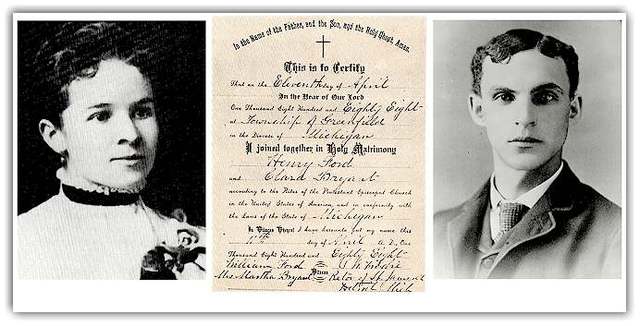 In the Name of the Father, and the Son, and the Holy Ghost, Amen.
This is to Certify
That on the Eleventh day of April
In the Year of Our Lord
One Thousand Eight Hundred and Eighty Eight
at Township of Greenfield
in the Diocese of Michigan
I joined together in Holy Matrimony
Henry Ford
and Clara Bryant
according to the Rites of the Protestant Episcopal Church
in the United States of America, and in conformity with
the Laws of the State of Michigan
In Witness Whereof I have hereunto put my name this
11th day of April A. D. One
Thousand Eight Hundred and Eighty Eight
William Ford
Mrs Martha Bryant
Rector of St James
Detroit Mich